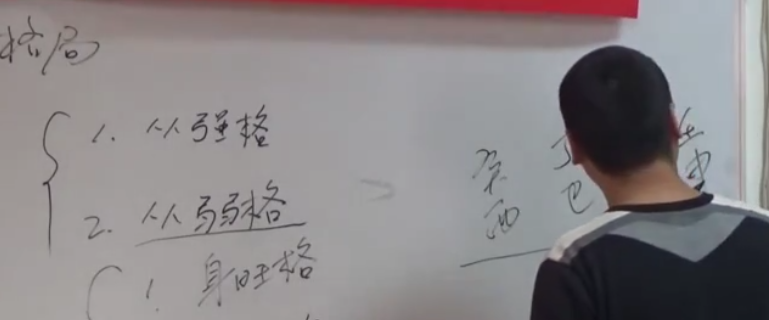 格局
1. 从强格
2. 从弱格
1. 身旺格
癸
酉 巳